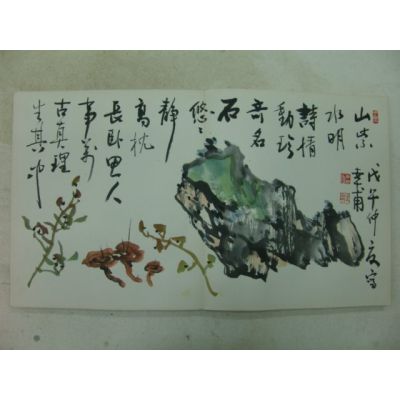 山紫
水明
詩情
動於
奇名
石
悠々
静
高枕
長臥思人
事萬
古真理
生其中
戊午仲夏寫